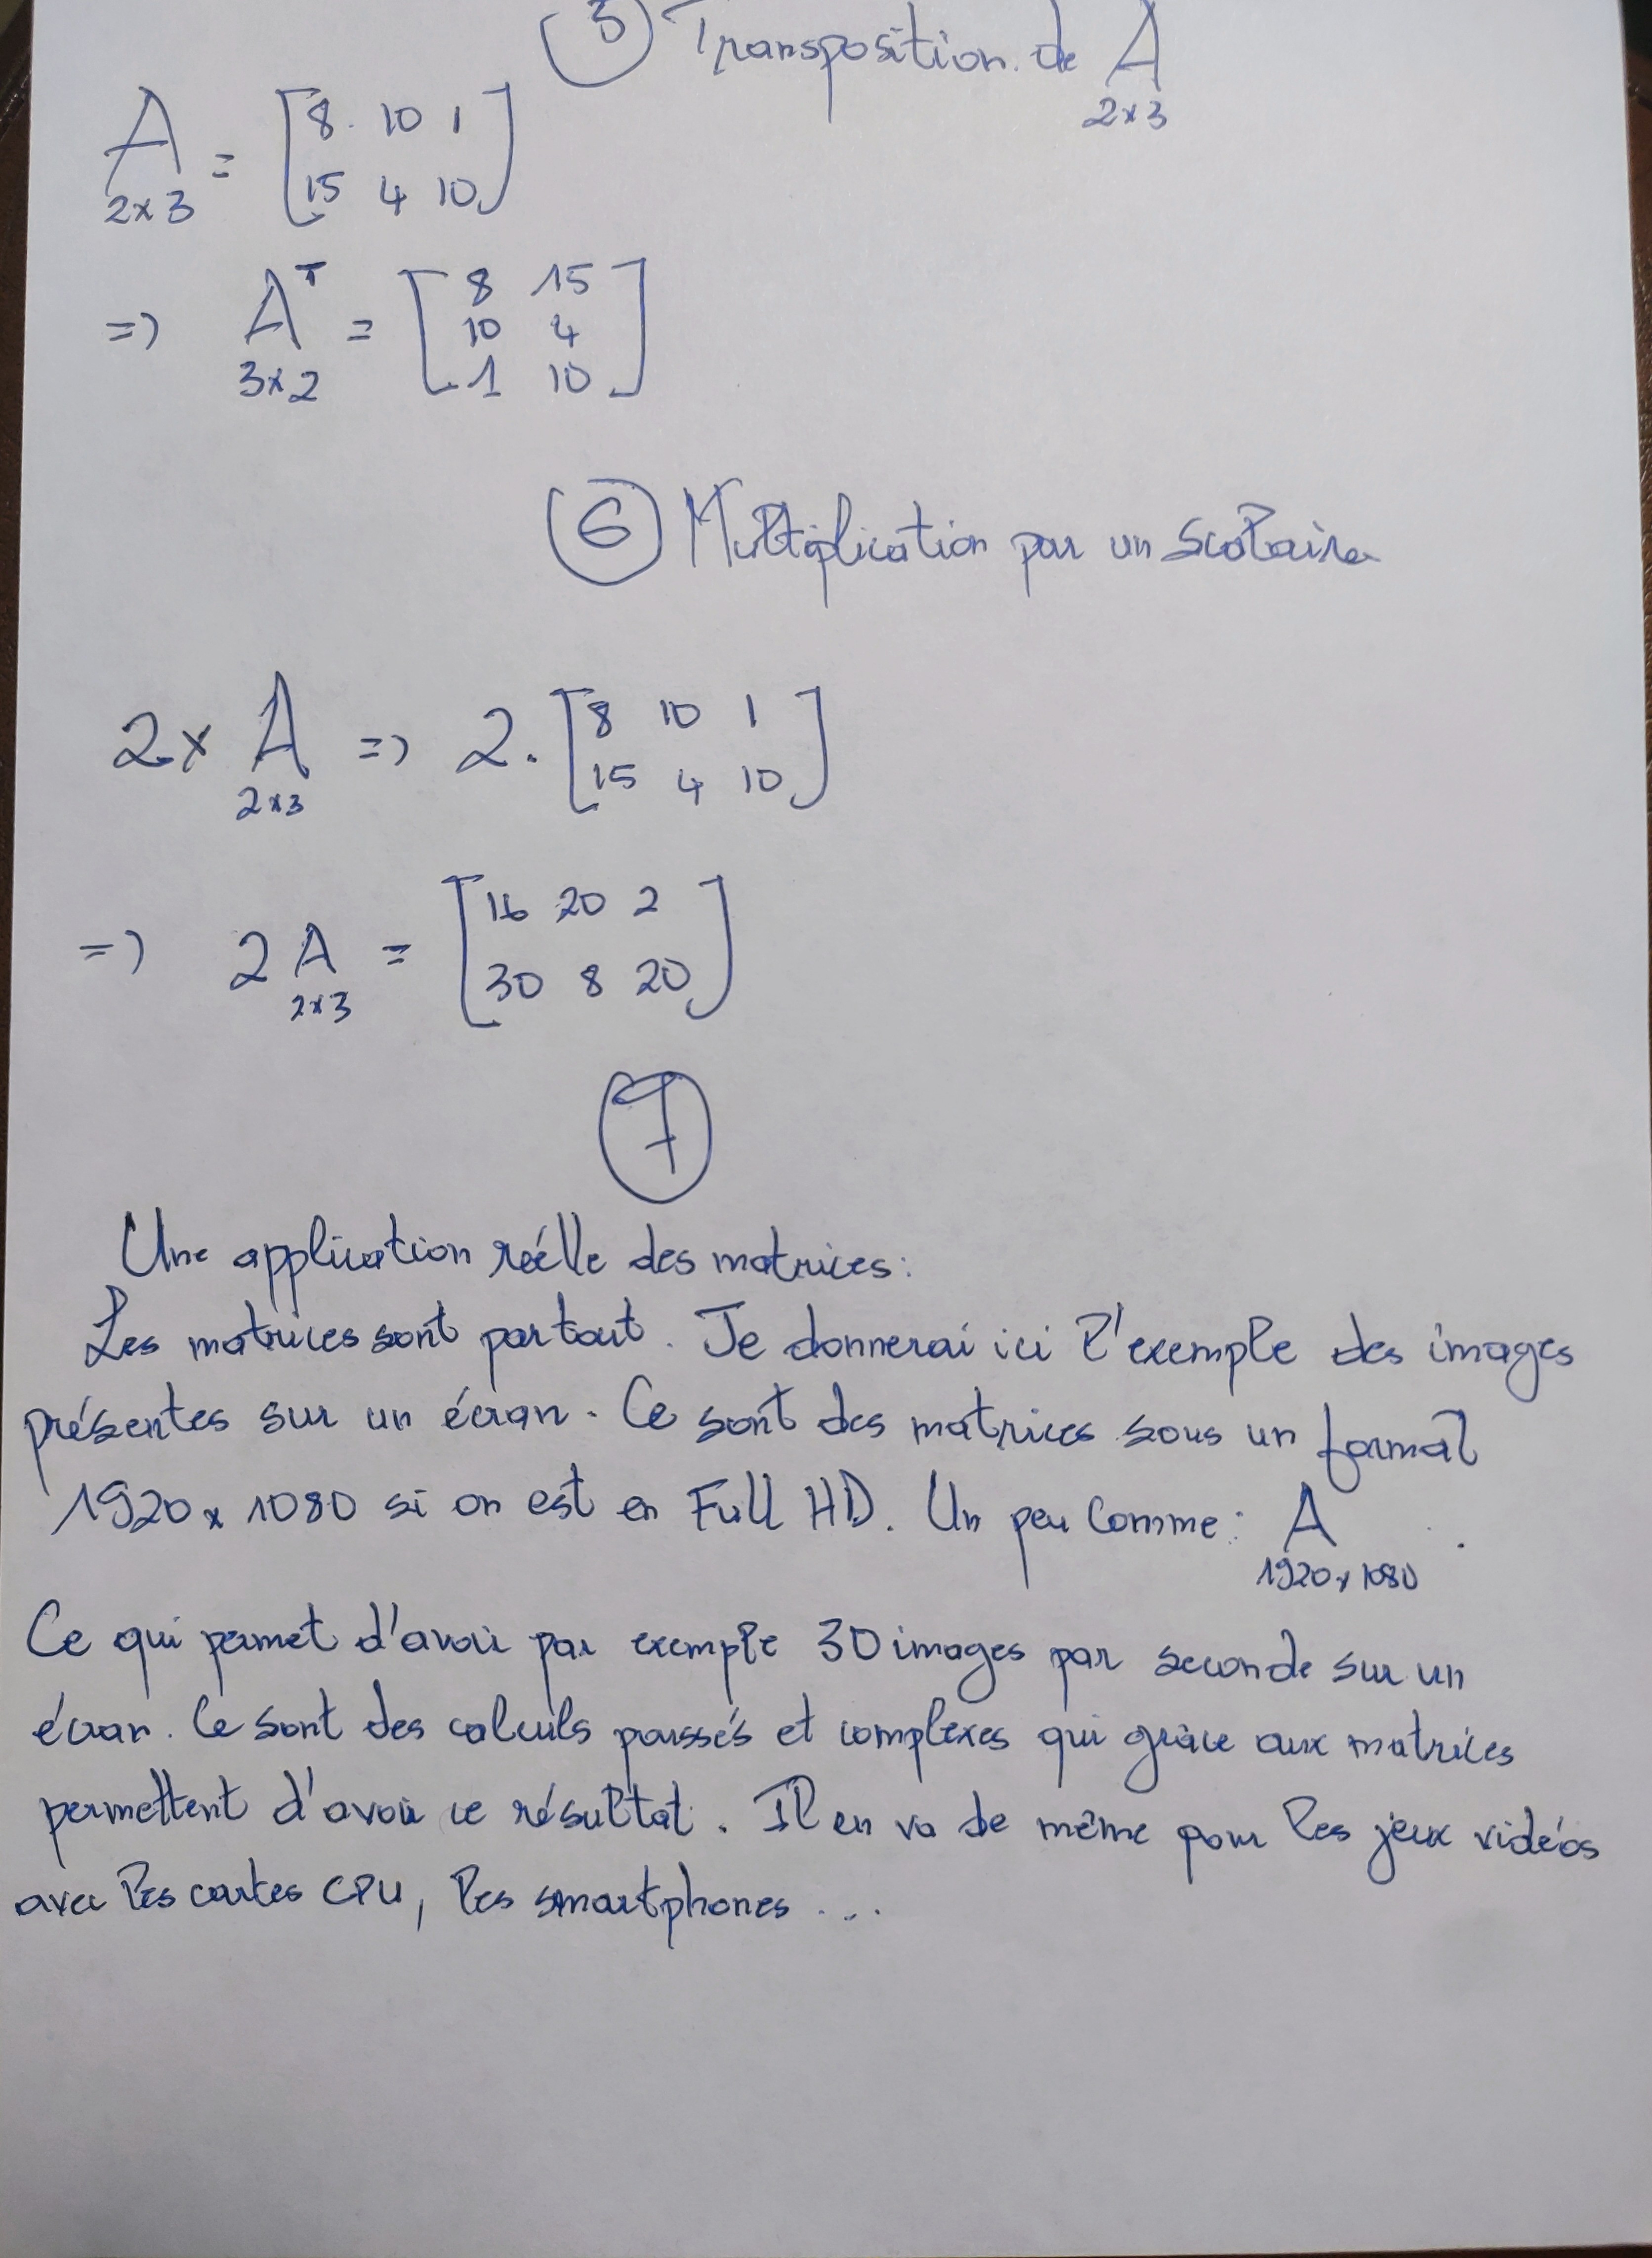 5 Transposition de A
2x3
A = [8 10 1
2x3 15 4 10]
=> Aᵀ = [8 15
10 4
3x2 1 10]
6 Multiplication par un scalaire
2x A => 2. [8 10 1
2x3 15 4 10]
=> 2 A = [16 20 2
2x3 30 8 20]
7
Une application réélle des matrices:
Les matrices sont partout. Je donnerai ici l'exemple des images
présentes sur un écran. Ce sont des matrices sous un format
1920x1080 si on est en Full HD. Un peu Comme: A .
1920x1080
Ce qui permet d'avoir par exemple 30 images par seconde sur un
écran. Ce sont des calculs poussés et complexes qui grâce aux matrices
permettent d'avoir ce résultat. Il en va de même pour les jeux vidéos
avec les cartes CPU, les smartphones ...